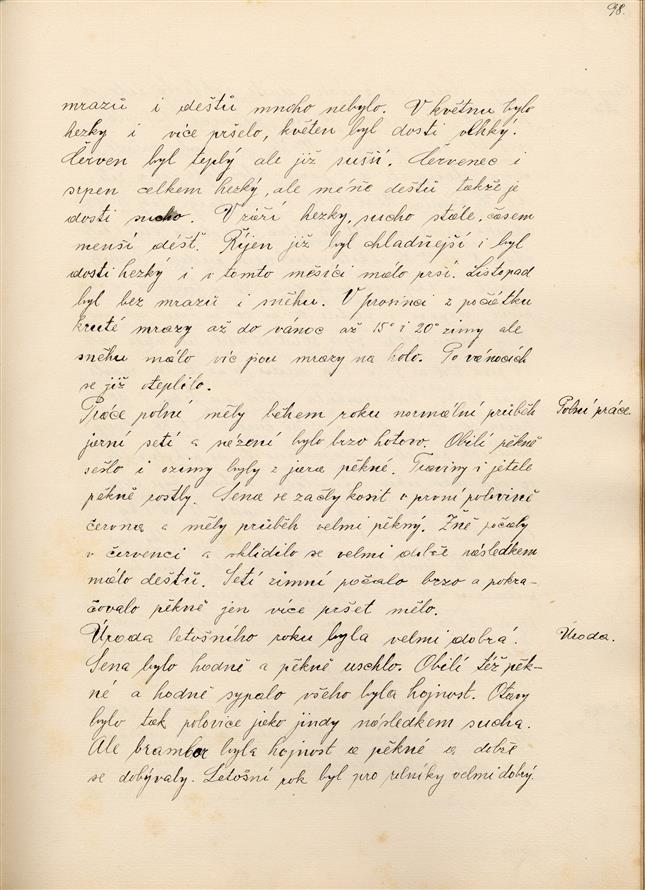 98.
mrazů i dešťů mnoho nebylo. V květnu bylo
hezky i více pršelo, květen byl dosti vlhký.
Červen byl teplý ale již sušší. Červenec i
srpen celkem hezký, ale méňe dešťů takže je
dosti sucho. V září hezky, sucho stále, časem
menší déšť. Říjen již byl chladňejší i byl
dosti hezký i v tomto měsíci málo prší. Listopad
byl bez mrazů i sněhu. V prosinci z počátku
kruté mrazy až do vánoc až 15° i 20° zimy ale
sněhu málo víc jsou mrazy na holo. Po vánocích
se již oteplilo.
Práce polní měly během roku normální průběh
Polní práce.
jarní setí a sázení bylo brzo hotovo. Obilí pěkně
sešlo i ozimy byly z jara pěkné. Traviny i jetele
pěkně rostly. Sena se začly kosit v první polovině
června a měly průběh velmi pěkný. Žně počaly
v červenci a sklidilo se velmi dobře následkem
málo dešťů. Setí zimní počalo brzo a pokra-
čovalo pěkně jen více pršet mělo.
Úroda letošního roku byla velmi dobrá.
Úroda.
Sena bylo hodně a pěkně uschlo. Obilí též pěk-
né a hodně sypalo všeho byla hojnost. Otavy
bylo tak polovice jako jindy následkem sucha.
Ale brambor byla hojnost a pěkné a dobře
se dobývaly. Letošní rok byl pro rolníky velmi dobrý.